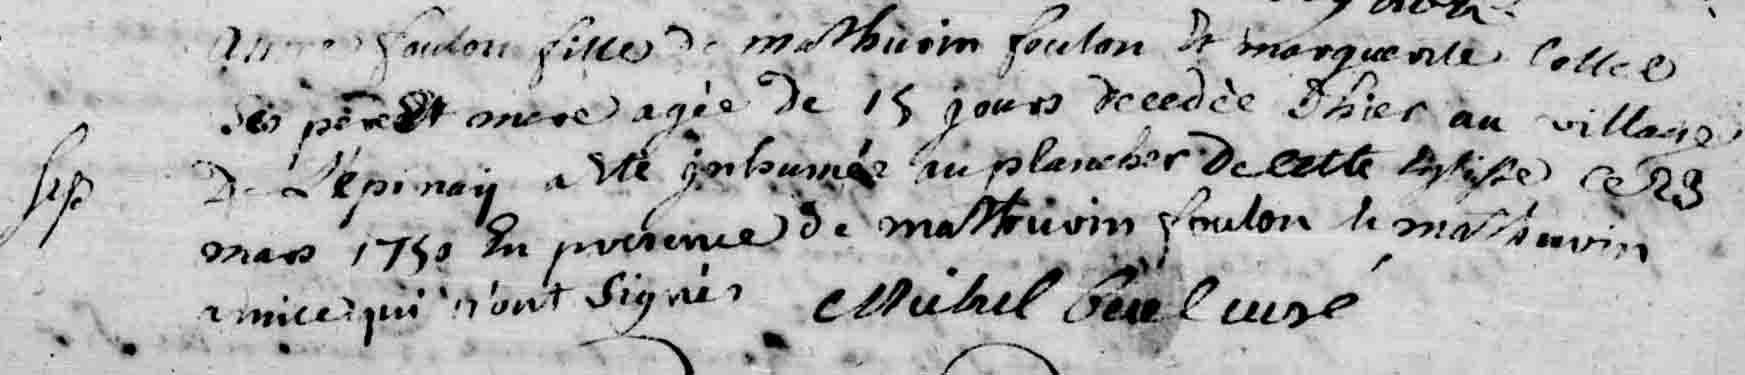 foulon fille de mathurin foulon et marguerite Collet
Ses père Et mere agée de 15 jours decedèe d'hier au village
De L'épinaÿ a été jnhumée au plancher de cette Eglisse ce 23
mars 1750 En presence de mathurin foulon et mathurin
amice qui n'ont Signés Michel curé
Sep